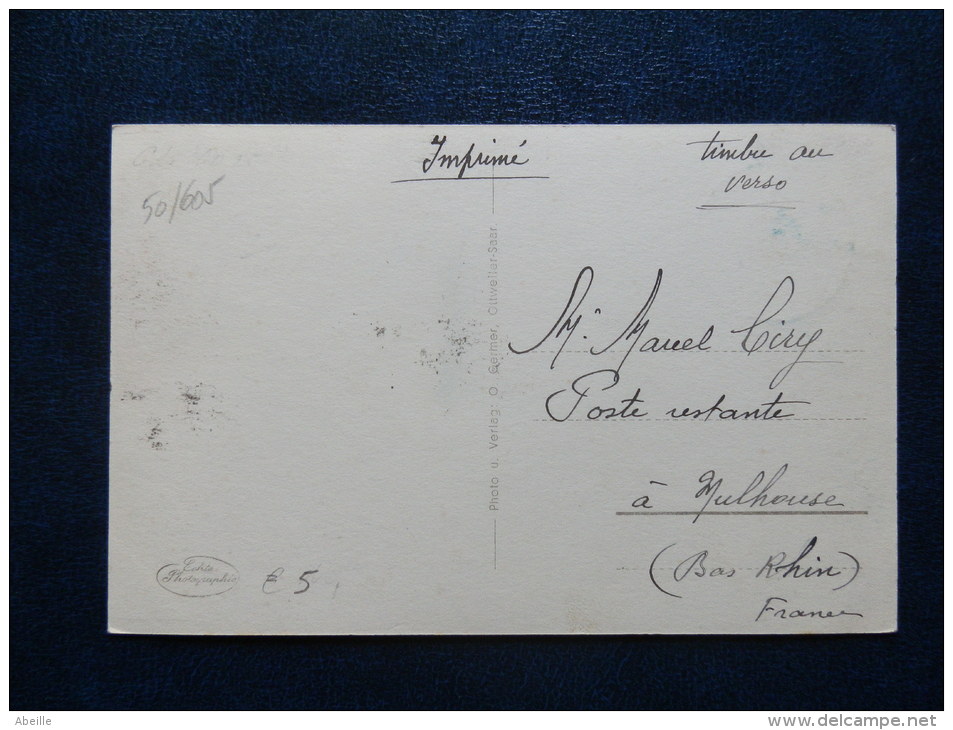 Imprimé
timbre au
verso
50/605
Mr. Marcel Ciry
Poste restante
à Mulhouse
(Bas Rhin)
France
Photo u. Verlag: O Germer, Ottweiler-Saar
Echte
Photographie
€ 5
Abeille
www.delcampe.net